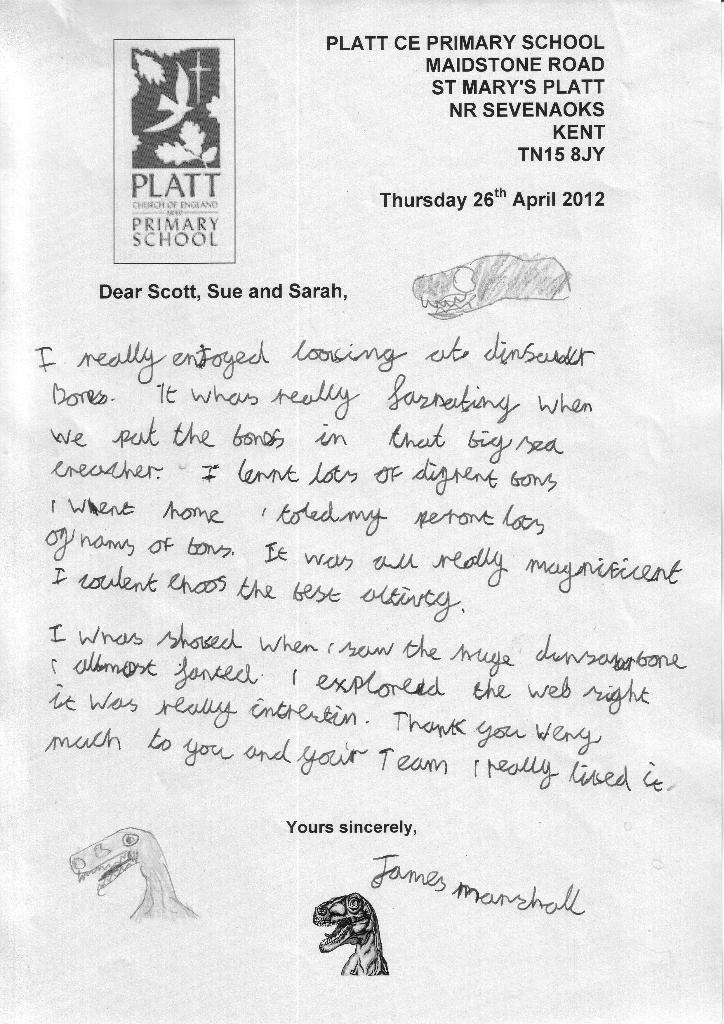 PLATT CE PRIMARY SCHOOL
MAIDSTONE ROAD
ST MARY'S PLATT
NR SEVENAOKS
KENT
TN15 8JY
PLATT
CHURCH OF ENGLAND
PRIMARY
SCHOOL
Thursday 26th April 2012
Dear Scott, Sue and Sarah,
I really enjoyed loocing at dinsauar
Bones. It whas really fasnating when
we put the bons in that big sea
creacher. I lernt lots of difrent bons
i whent home i toled my peront lots
of nams of bons. It was all really magnificent
I coulent choos the best altivity.
I whas shoced when i saw the huge dinsaurbone
i allmost fanted. I explored the web sight
it was really intrestin. Thank you very
much to you and your Team i really liked it.
Yours sincerely,
James marshall